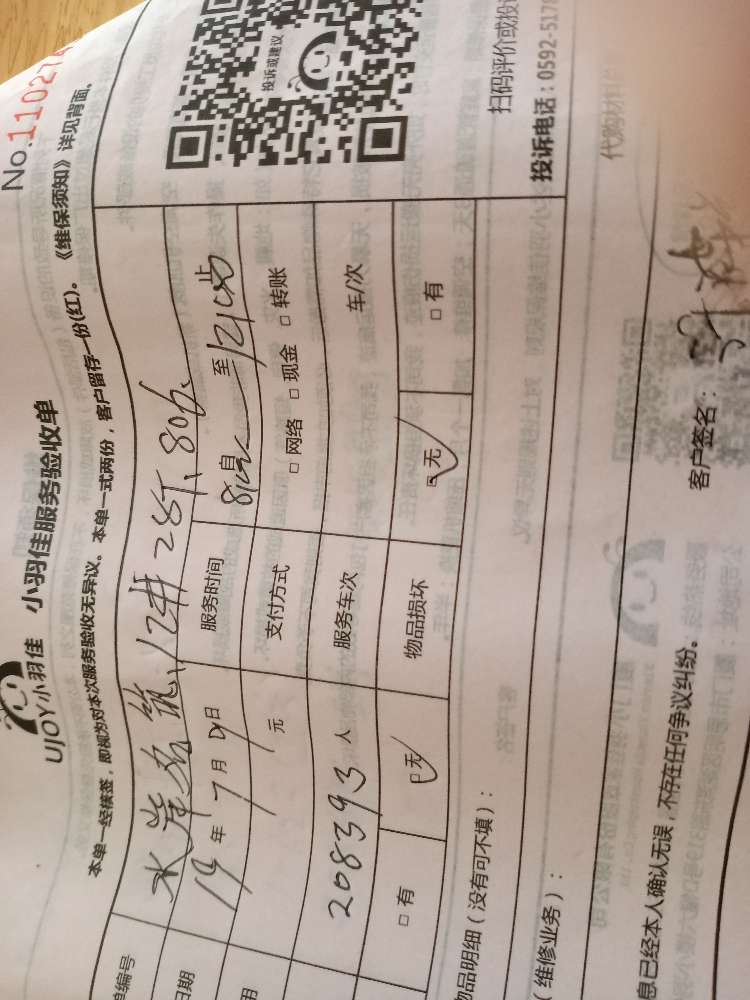 No.110274
UJOY小羽佳 小羽佳服务验收单
本单一经核签，即视为对本次服务验收无异议。本单一式两份，客户留存一份(红)。《维保须知》详见背面。
投诉或建议
单编号 水岸名筑、12# 28T、806、
日期 19年7月 日 服务时间 自 至 止
用 元 支付方式 □ 网络 □ 现金 □ 转账
208393 人 服务车次 车/次
□ 有 □ 无 物品损坏 □ 无 □ 有
扫码评价或投诉
投诉电话：0592-5178
物品明细（没有可不填）：
（维修业务）：
代购材料
息已经本人确认无误，不存在任何争议纠纷。 客户签名：